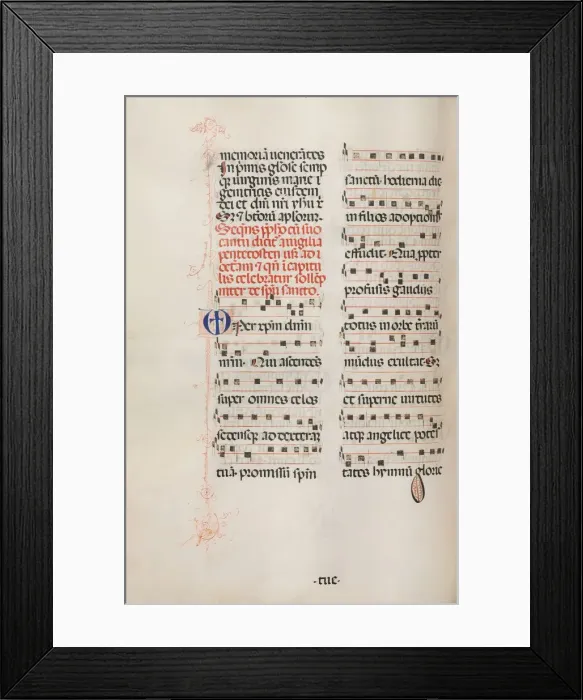 memoriā venerātes
In pͥmis glōse semp
qꝫ uirginis marie
genitricis eiusdem
dei et dn̄i nr̄i yhū x
Sꝫ ⁊ btōrū aplōrum.
Seqn̄s pp̄φ cū suo
cantu dicit᷑ a uigilia
pentecosten usqꝫ ad
octauā ⁊ qn̄ ī capitu
lis celebrat᷑ sollēp
niter de spū sancto.
Per xp̄m dn̄m
nr̄m. Qui ascendēs
super omnes celos
sedensqꝫ ad dexterā
tuā. promissū spm̄
sanctū. hodierna die
in filios adoptionis
effudit. Qua ppter
profusis gaudiis
totus in orbe trarū
mūdus exultat. Sꝫ
et superne uirtutes
atqꝫ angelice potes
tates hymnū glorie
-tue-